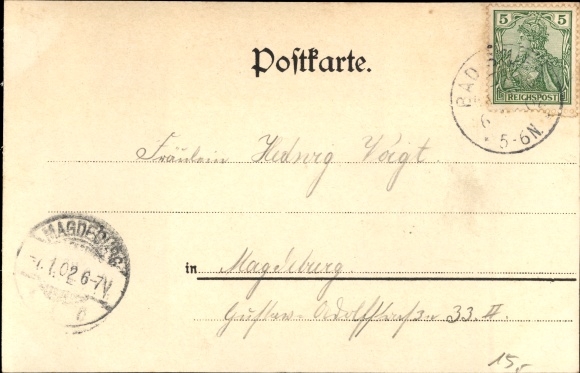 Postkarte.
5 5
REICHSPOST
BAD
5-6N.
Fräulein Hedwig Voigt.
MAGDEBURG
1.02 6-7V.
in Magdeburg
Gustav-Adolfstraße 33.II.
15,